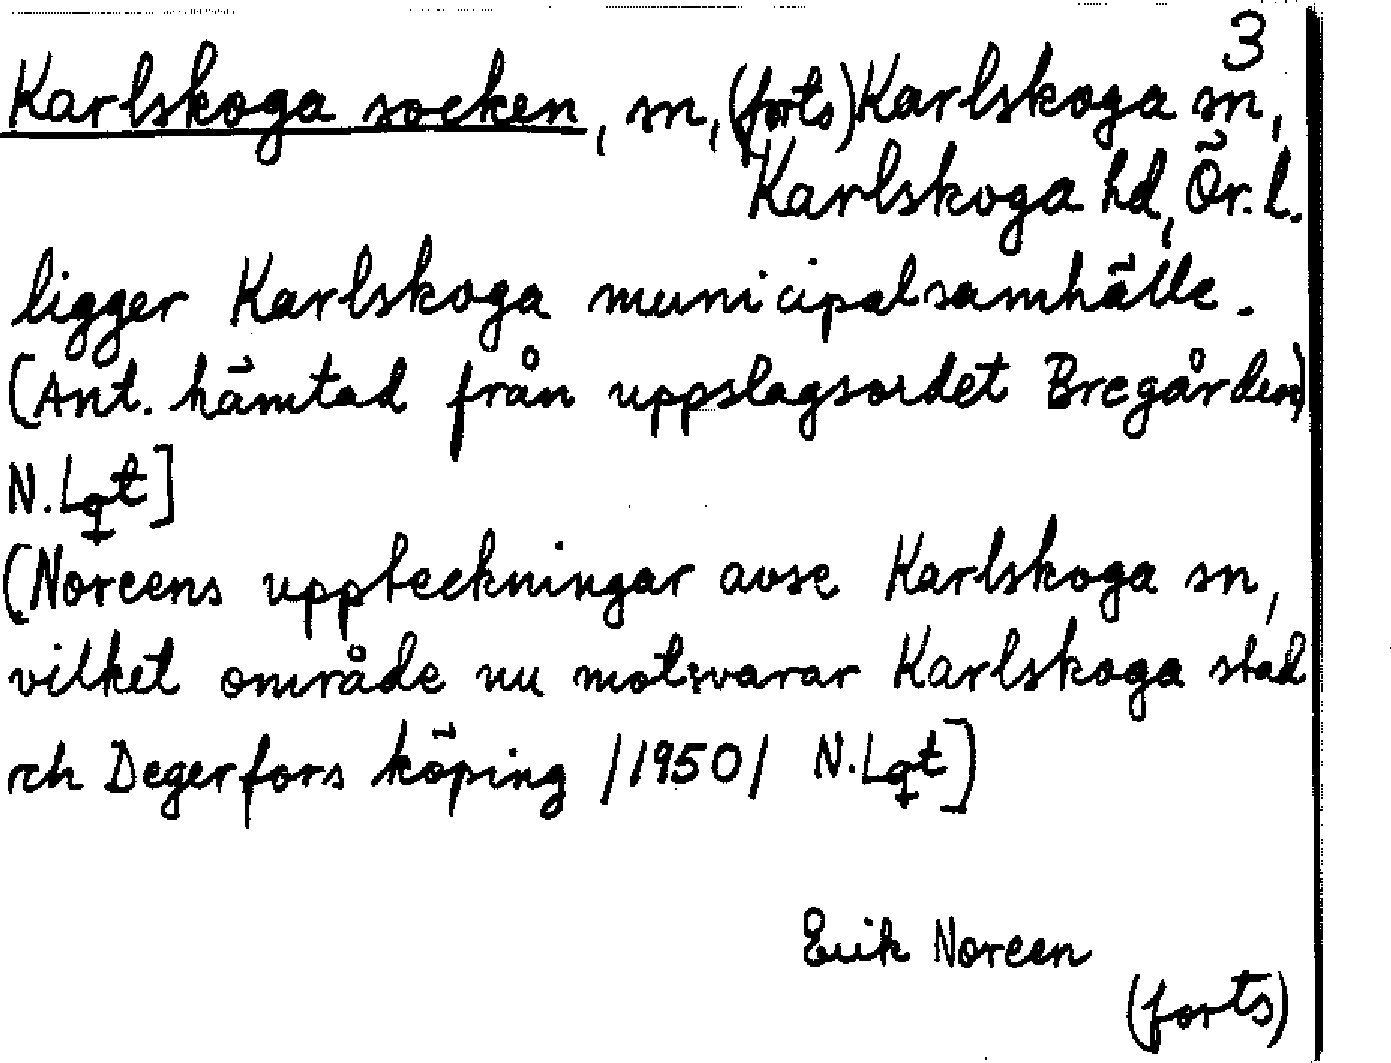 3
Karlskoga socken, sn, (forts) Karlskoga sn,
Karlskoga hd, Ör. l.
ligger Karlskoga municipalsamhälle.
(Ant. hämtad från uppslagsordet Bregården)
N. Lqt]
(Noreens uppteckningar avse Karlskoga sn,
vilket område nu motsvarar Karlskoga stad
och Degerfors köping /1950/ N. Lqt]
Erik Noreen
(forts)